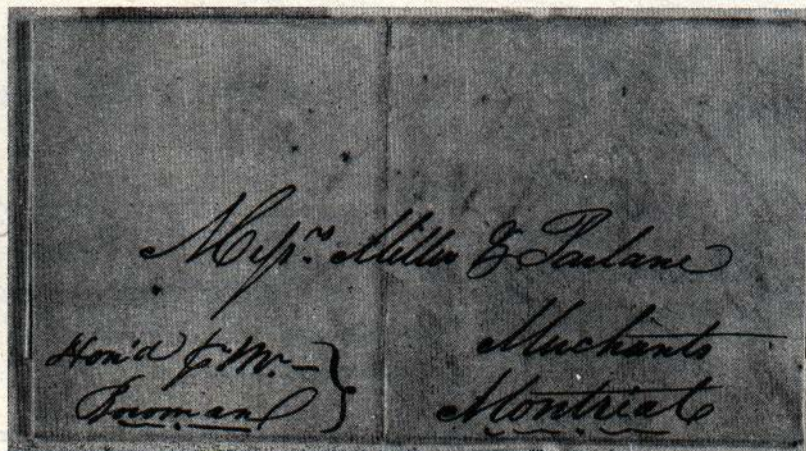 Messrs. Miller & Parlane
Merchants
Montreal
Hon'd pr Mr. —
Bowman